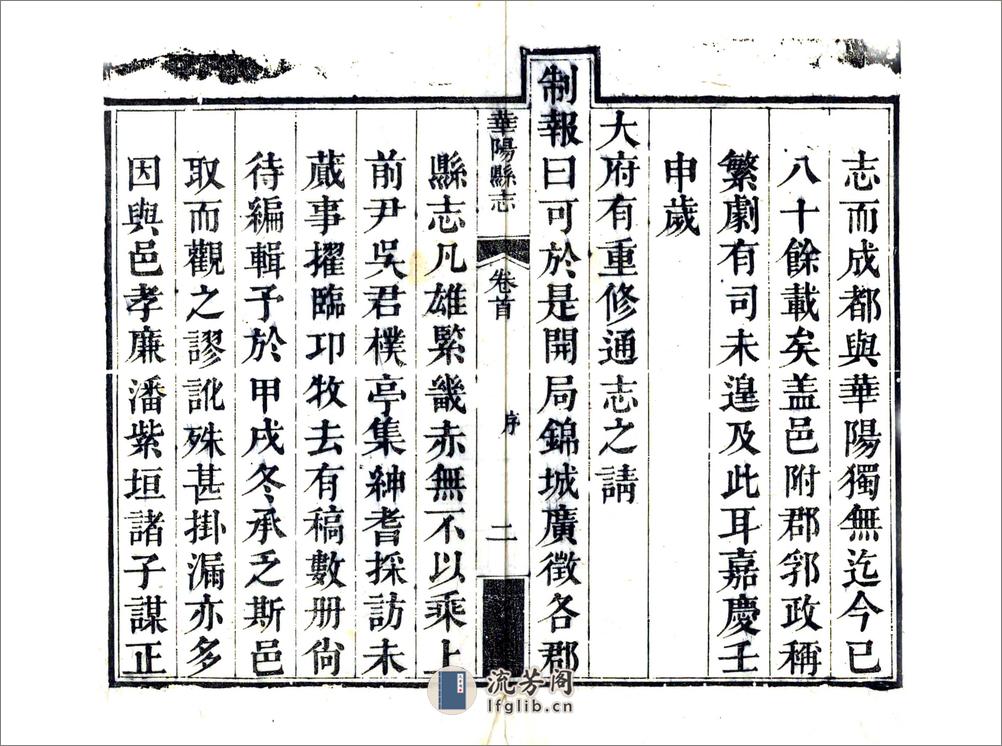 志而成都與華陽獨無迄今已
八十餘載矣盖邑附郡郛政稱
繁劇有司未遑及此耳嘉慶壬
申歲
大府有重修通志之請
制報曰可於是開局錦城廣徵各郡
華陽縣志 卷首 序 二
縣志凡雄緊畿赤無不以乘上
前尹吳君樸亭集紳耆採訪未
蕆事擢臨邛牧去有稿數册尙
待編輯予於甲戌冬承乏斯邑
取而觀之謬訛殊甚掛漏亦多
因與邑孝廉潘紫垣諸子謀正
流芳阁
lfglib.cn